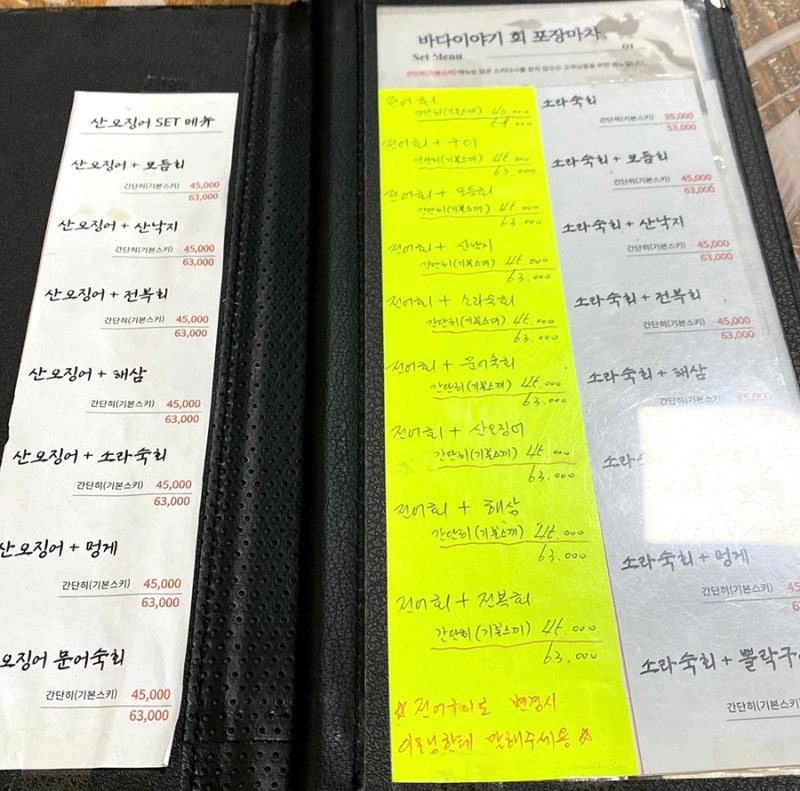 산오징어 SET 메뉴
산오징어 + 모듬회
간단히(기본스키) 45,000
63,000
산오징어 + 산낙지
간단히(기본스키) 45,000
63,000
산오징어 + 전복회
간단히(기본스키) 45,000
63,000
산오징어 + 해삼
간단히(기본스키) 45,000
63,000
산오징어 + 소라숙회
간단히(기본스키) 45,000
63,000
산오징어 + 멍게
간단히(기본스키) 45,000
63,000
오징어 문어숙회
간단히(기본스키) 45,000
63,000
바다이야기 회 포장마차
Set Menu 01
간단히(기본스키)
전어회
간단히(기본스끼) 45.000
전어회 + 구이
간단히(기본스끼) 45.000
63.000
전어회 + 모듬회
간단히(기본스끼) 45.000
63.000
전어회 + 산낙지
간단히(기본스끼) 45.000
63.000
전어회 + 소라숙회
간단히(기본스끼) 45.000
63.000
전어회 + 문어숙회
간단히(기본스끼) 45.000
63.000
전어회 + 산오징어
간단히(기본스끼) 45.000
63.000
전어회 + 해삼
간단히(기본스끼) 45.000
63.000
전어회 + 전복회
간단히(기본스끼) 45.000
63.000
☆ 전어구이로 변경시
이모님한테 말해주세용 ☆
소라숙회
간단히(기본스키) 35,000
53,000
소라숙회 + 모듬회
간단히(기본스키) 45,000
63,000
소라숙회 + 산낙지
간단히(기본스키) 45,000
63,000
소라숙회 + 전복회
간단히(기본스키) 45,000
63,000
소라숙회 + 해삼
간단히(기본스키) 45,000
소라숙회 + 멍게
간단히(기본스키)
소라숙회 + 뽈락구
간단히(기본스키)